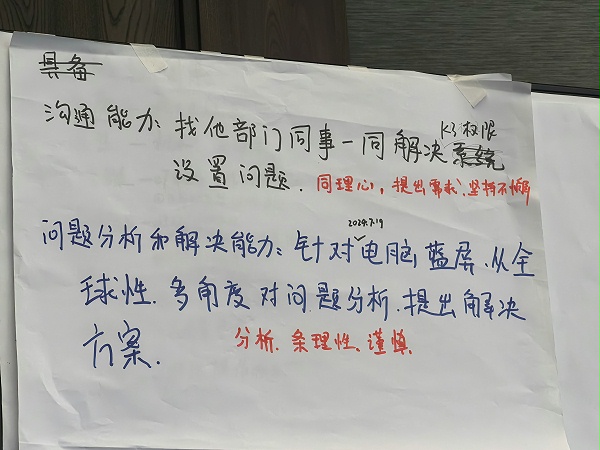 具备
沟通能力：找他部门同事一同解决系统K3权限
设置问题．同理心，提出需求、坚持不懈
问题分析和解决能力：针对2024.7.19电脑蓝屏、从全
球性．多角度对问题分析．提出解决
方案．分析．条理性、谨慎